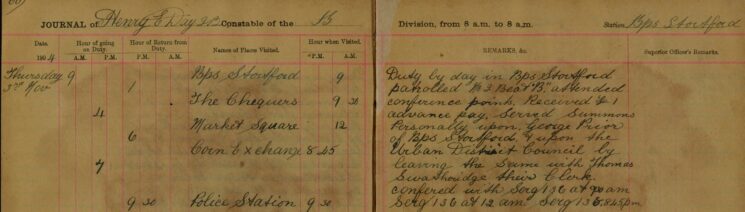 JOURNAL OF Henry E Day 213 Constable of the B Division, from 8 a.m. to 8 a.m. Station Bps Stortford
Date. Hour of going on Duty. Hour of Return from Duty. Names of Places Visited. Hour when Visited. REMARKS, &c. Superior Officer's Remarks.
1904 A.M. P.M. A.M. P.M. A.M. P.M.
Thursday 9 Bps Stortford 9 Duty by day in Bps Stortford
3rd Nov 1 patrolled No 3 Beat B. attended
The Chequers 9 30 conference points. Received £1
4 advance pay. Served Summons
Market Square 12 Personally upon George Prior
6 of Bps Stortford & upon the
Corn Exchange 8.45 Urban District Council by
7 leaving the same with Thomas
their Clerk
confered with Serg 136 at 9 am
9 30 Police Station 9 30 Serg 136 at 12 am Serg 136 8.45 pm